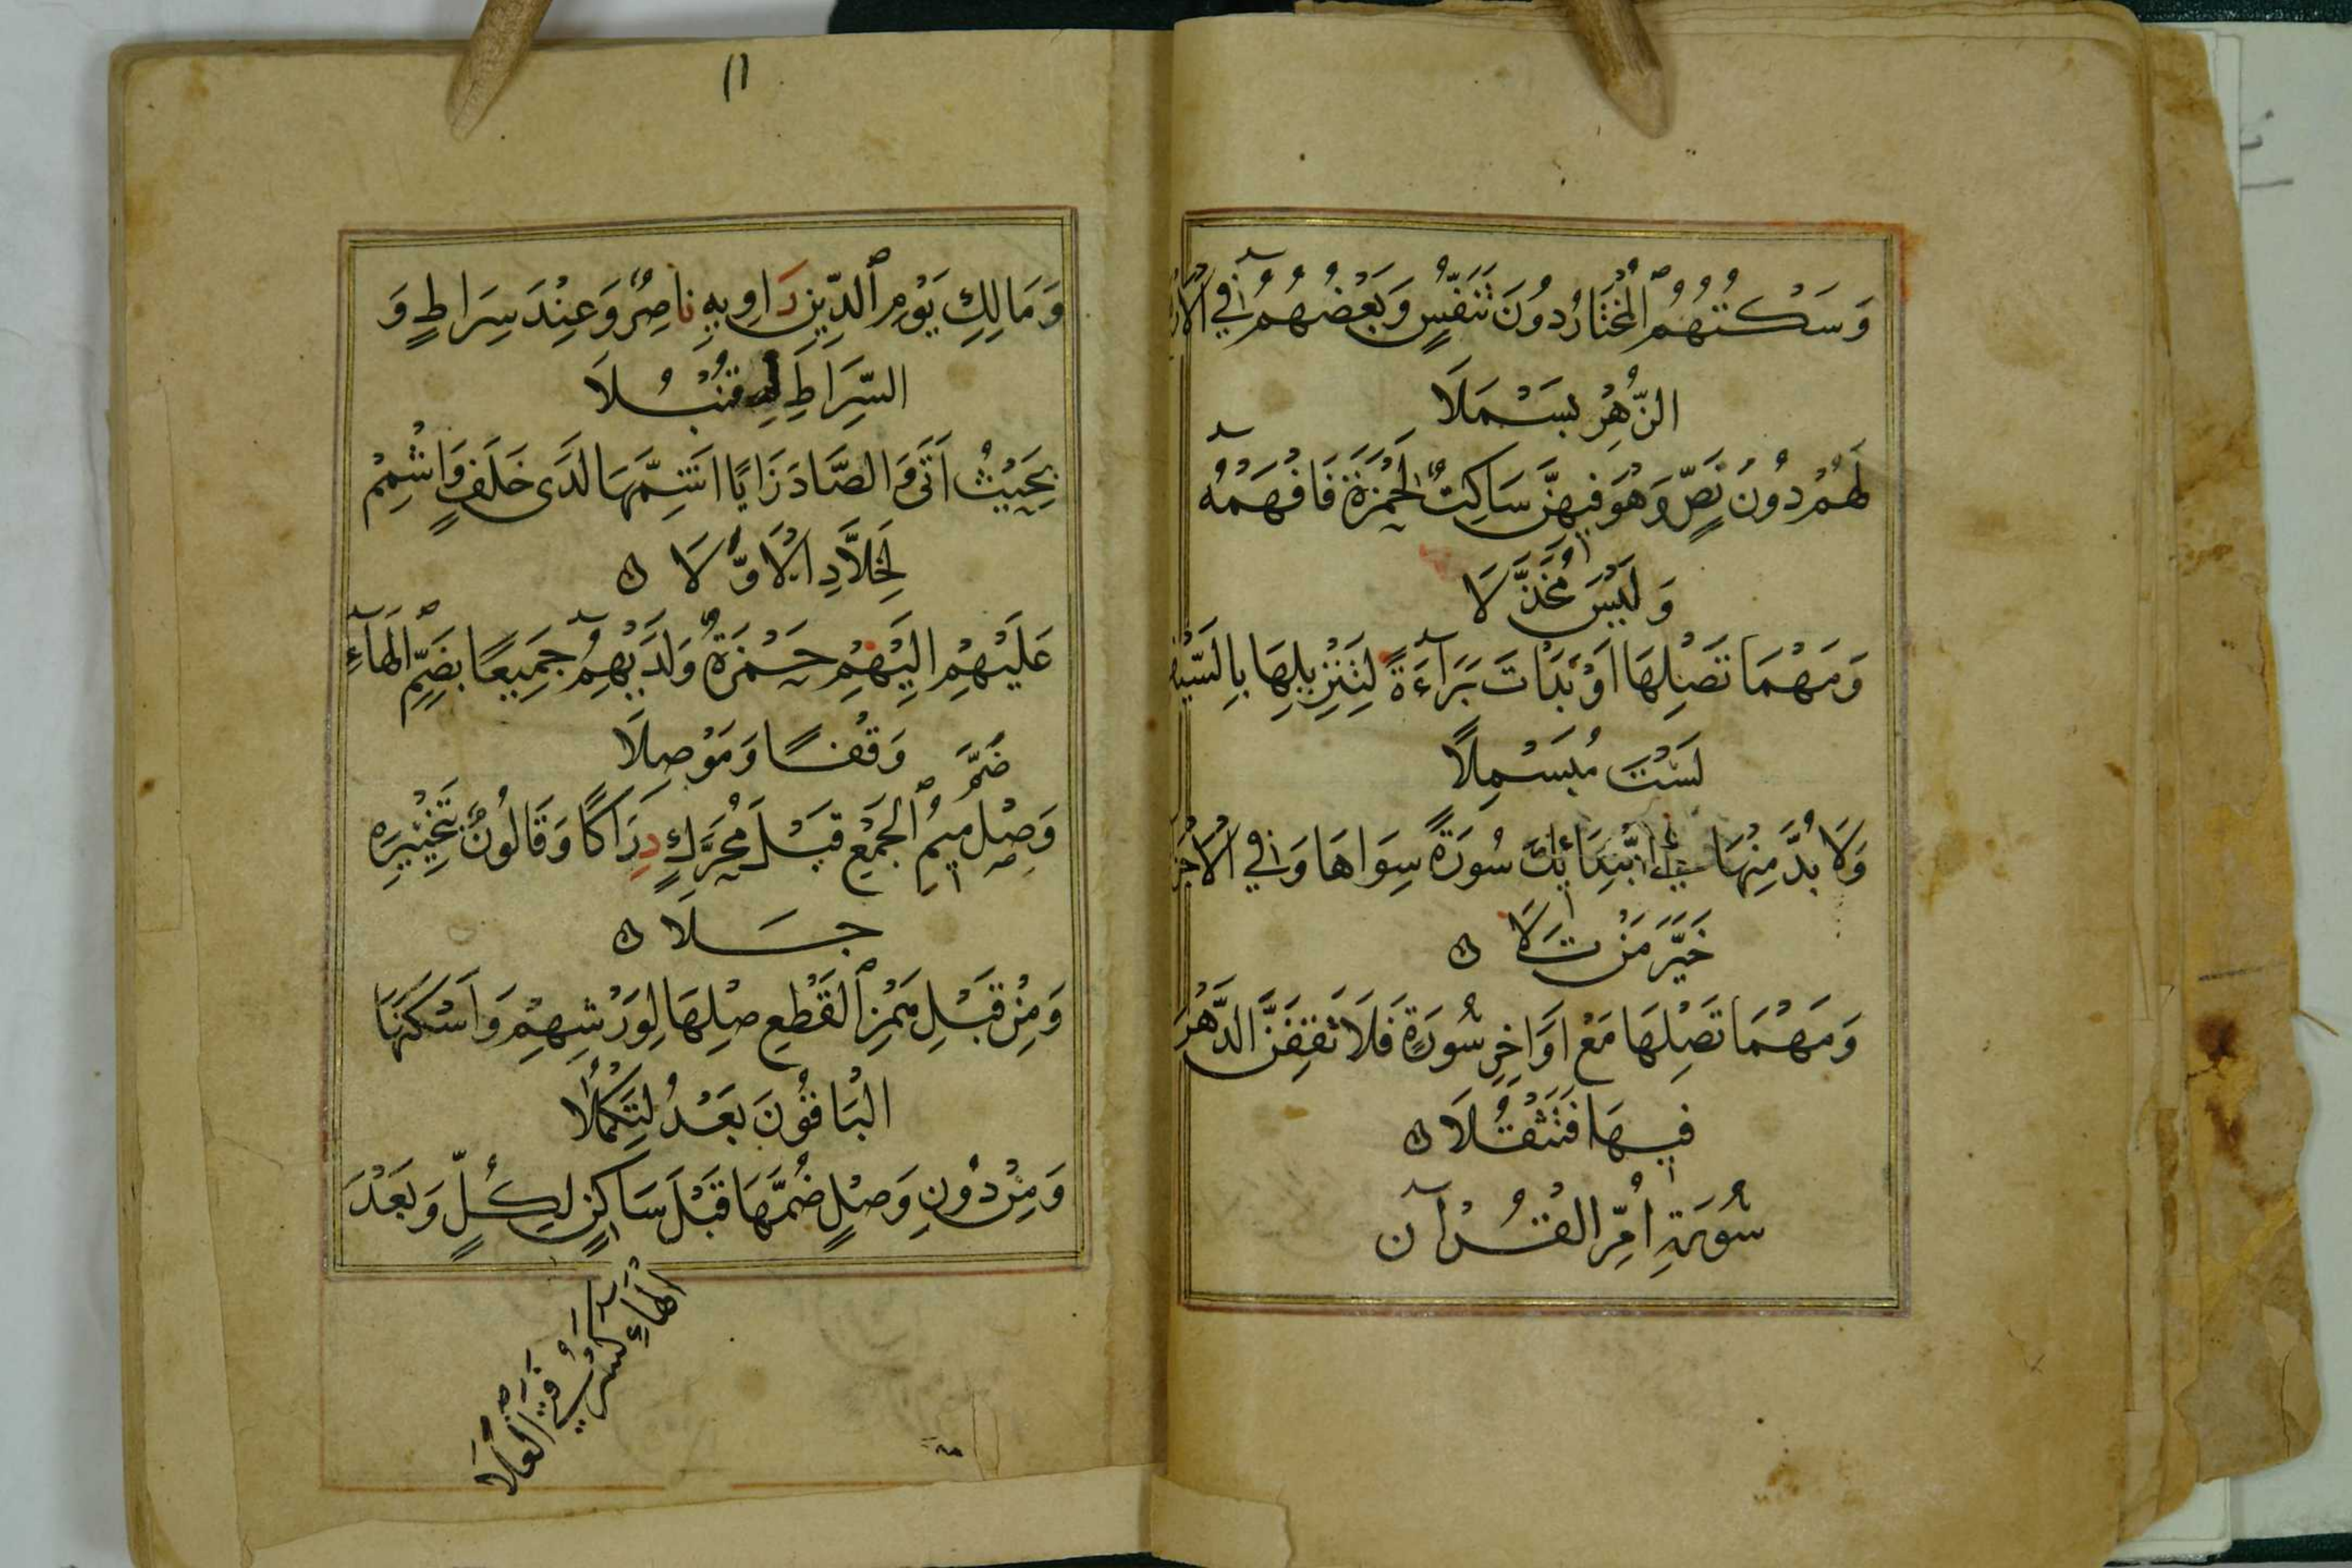 وَسَكْتُهُمُ ٱلْمُخْتَارُ دُونَ تَنَفُّسٍ وَبَعْضُهُمُ فِي الْأَرْ
الزُّهْرِ بَسْمَلَا
لَهُمْ دُونَ نَصٍّ وَهُوَ فِيهِنَّ سَاكِتٌ لِحَمْزَةَ فَافْهَمْهُ
وَلَيْسَ مُخَذَّلَا
وَمَهْمَا تَصِلْهَا أَوْ بَدَأْتَ بَرَآءَةً لِتَنْزِيلِهَا بِالسَّيْفِ
لَسْتَ مُبَسْمِلًا
وَلَا بُدَّ مِنْهَا فِي ابْتِدَائِكَ سُورَةً سِوَاهَا وَفِي الْأَجْزَ
خَيَّرَ مَنْ تَلَا ۞
وَمَهْمَا تَصِلْهَا مَعْ أَوَاخِرِ سُورَةٍ فَلَا تَقِفَنَّ الدَّهْرَ
فِيهَا فَتَثْقُلَا ۞
سُورَةِ أُمِّ الْقُرْآنِ
١١
وَمَالِكِ يَوْمِ ٱلدِّينِ رَاوِيهِ نَاصِرٌ وَعِنْدَ سِرَاطٍ وَ
السِّرَاطِ لِ قُنْبُلَا
بِحَيْثُ أَتَى وَالصَّادَ زَايًا أَشِمَّهَا لَدَى خَلَفٍ وَاشْمِمْ
لِخَلَّادِ الْأَوَّلَا ۞
عَلَيْهِمْ إِلَيْهِمْ حَمْزَةٌ وَلَدَيْهِمُ جَمِيعًا بِضَمِّ ٱلْهَآءِ
وَقْفًا وَمَوْصِلَا
وَصِلْ ضَمَّ مِيمِ ٱلْجَمْعِ قَبْلَ مُحَرَّكٍ دِرَاكًا وَقَالُونٌ بِتَخْيِيرِهِ
جَلَا ۞
وَمِنْ قَبْلِ هَمْزِ ٱلْقَطْعِ صِلْهَا لِوَرْشِهِمْ وَأَسْكَنَهَا
الْبَاقُونَ بَعْدُ لِتَكْمُلَا
وَمِنْ دُونِ وَصْلٍ ضُمَّهَا قَبْلَ سَاكِنٍ لِكُلٍّ وَبَعْدَ
الْهَآءِ كَسْرُ فَتَى الْعَلَا